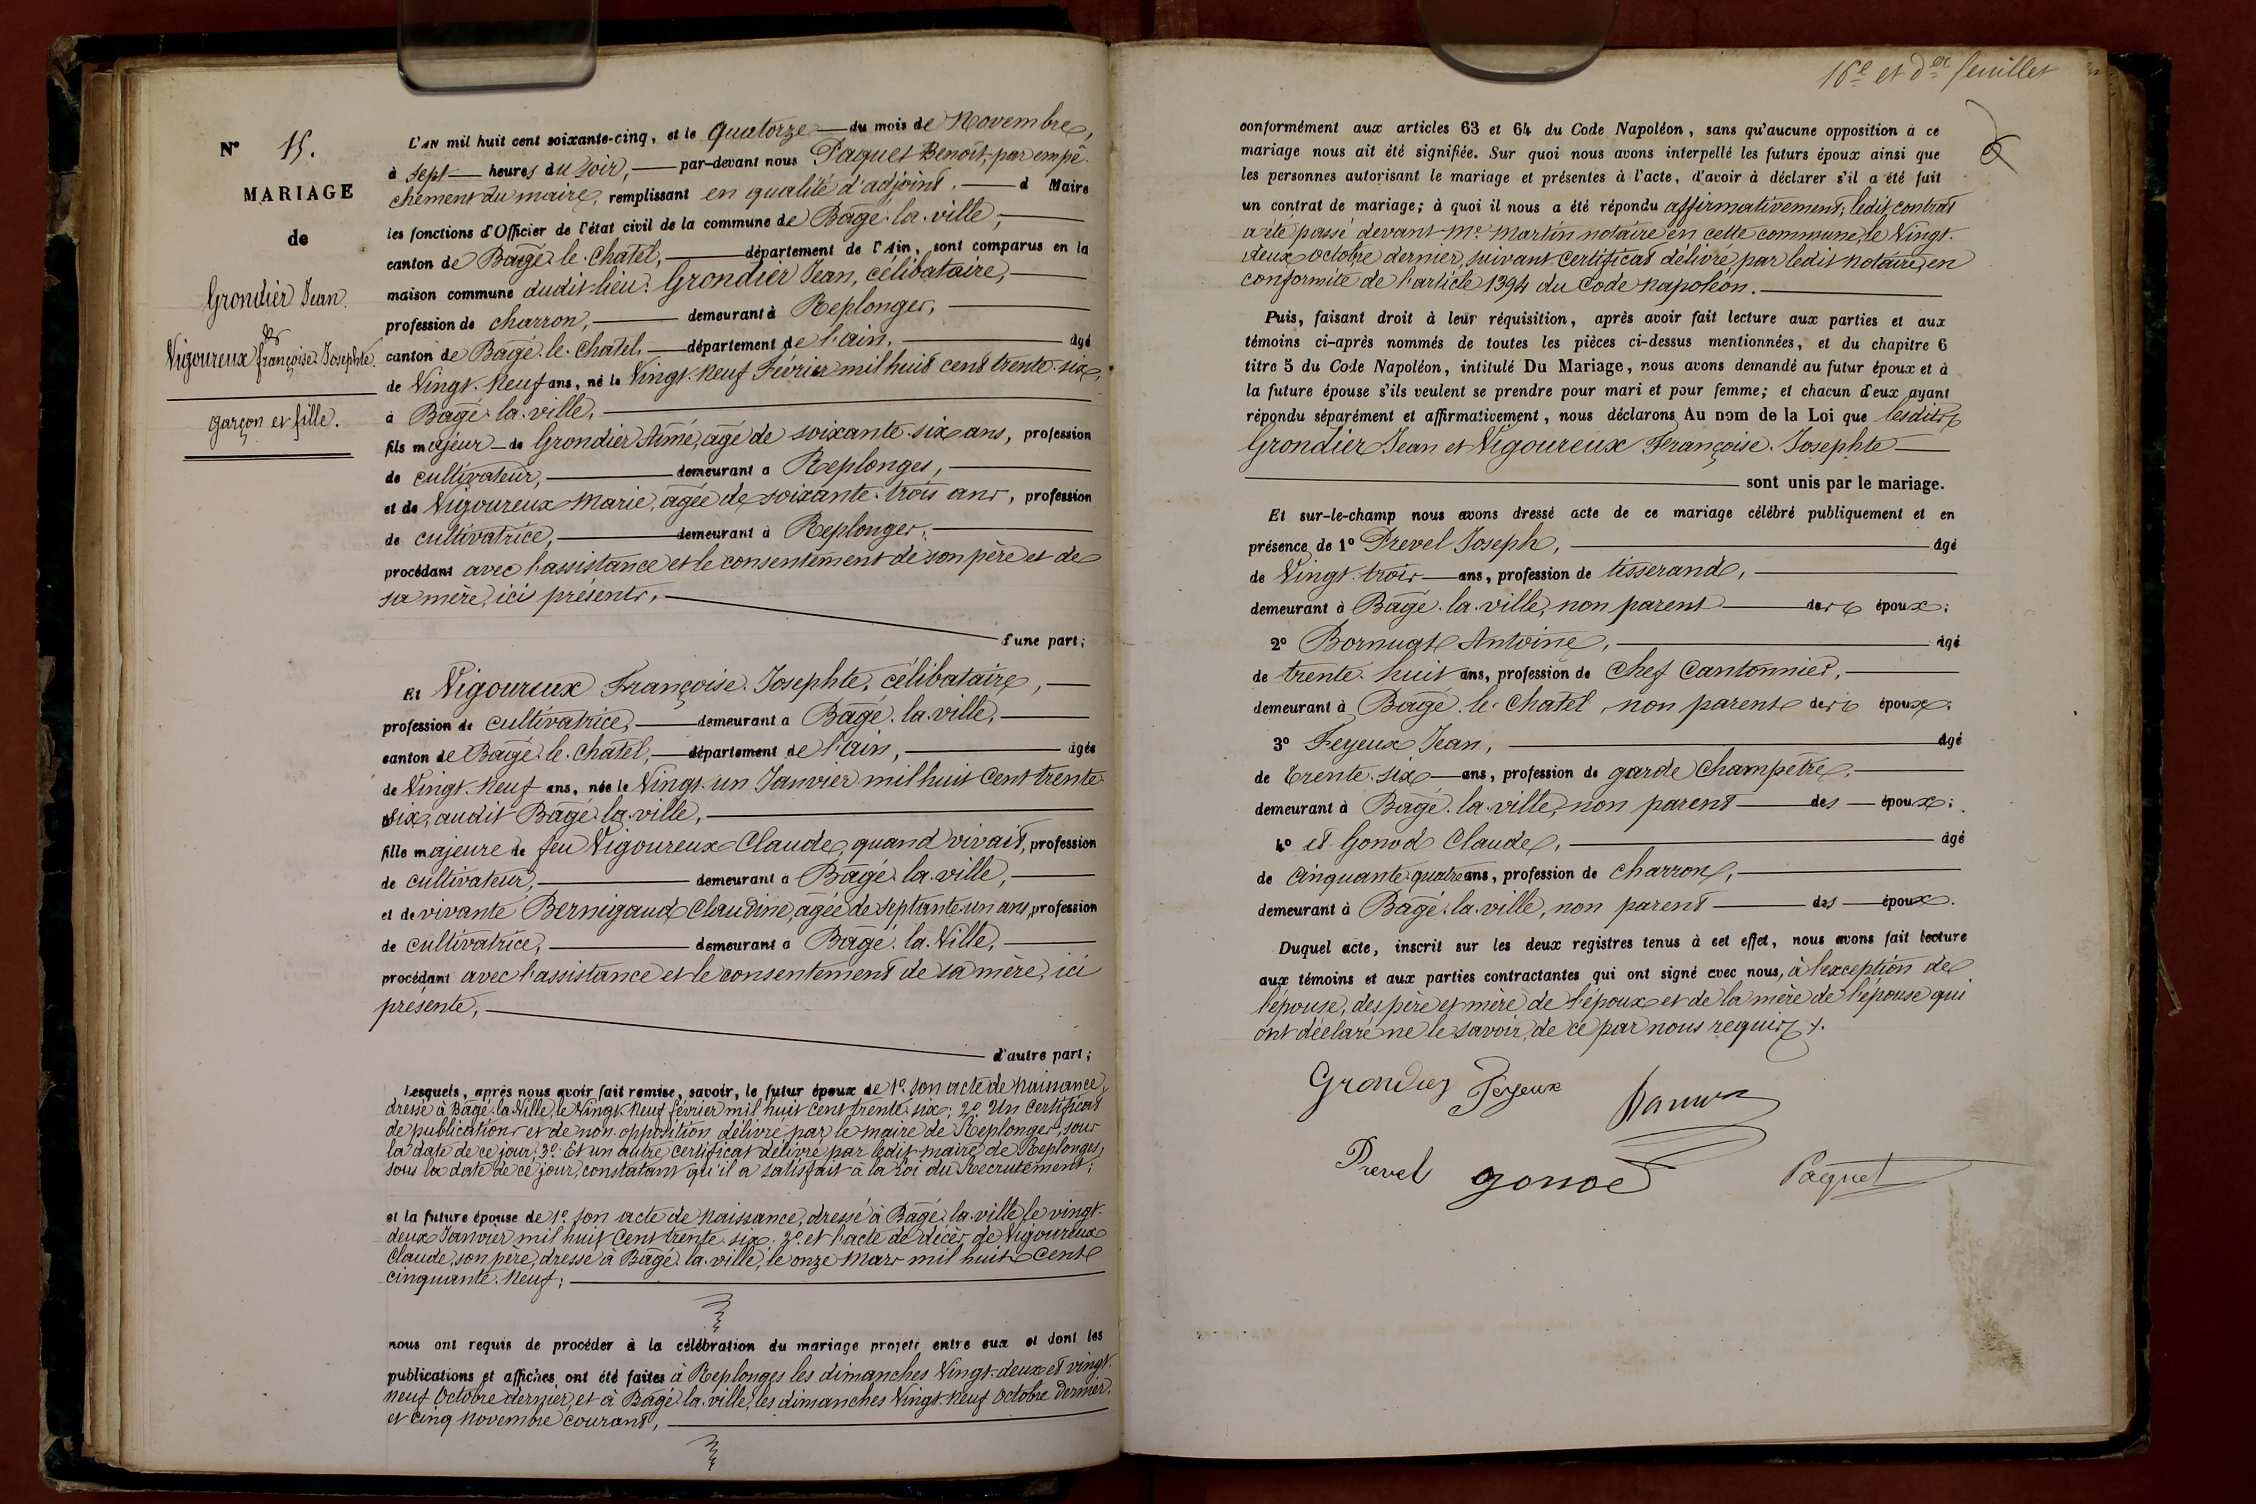 N° 15.
MARIAGE
de
Grondier Jean.
&
Vigoureux françoise Josephte.
garçon et fille.
L'AN mil huit cent soixante-cinq, et le quatorze du mois de Novembre,
à sept heures du soir, par-devant nous Paquet Benoît, par empê-
chement du maire, remplissant en qualité d'adjoint, d Maire
les fonctions d'Officier de l'état civil de la commune de Bâgé-la-ville,
canton de Bâgé-le-Chatel, département de l'Ain, sont comparus en la
maison commune dudit lieu: Grondier Jean, célibataire,
profession de charron, demeurant à Replonges,
canton de Bâgé-le-Chatel, département de l'ain, âgé
de Vingt-Neuf ans, né le Vingt-Neuf Février mil huit cent trente-six,
à Bâgé-la-ville,
fils majeur de Grondier Aimé, âgé de soixante-six ans, profession
de cultivateur, demeurant a Replonges,
et de Vigoureux Marie, âgée de soixante-trois ans, profession
de cultivatrice, demeurant à Replonges,
procédant avec l'assistance et le consentement de son père et de
sa mère, ici présents,
d'une part;
Et Vigoureux Françoise Josephte, célibataire,
profession de cultivatrice, demeurant a Bâgé-la-ville,
canton de Bâgé-le-Chatel, département de l'ain, âgée
de Vingt-Neuf ans, née le Vingt-un Janvier mil huit Cent trente-
six, audit Bâgé-la-ville,
fille majeure de feu Vigoureux Claude, quand vivait, profession
de cultivateur, demeurant a Bâgé-la-ville,
et de vivante Bernigaud Claudine, agée de septante-un ans, profession
de cultivatrice, demeurant à Bâgé-la-Ville,
procédant avec l'assistance et le consentement de sa mère, ici
présente,
d'autre part;
Lesquels, après nous avoir fait remise, savoir, le futur époux de 1° son acte de Naissance,
dressé à Bâgé-la-Ville, le Vingt-Neuf février mil huit cent trente-six; 2° Un certificat
de publications et de non-opposition délivré par le maire de Replonges, sous
la date de ce jour; 3° Et un autre certificat délivré par ledit maire de Replonges,
sous la date de ce jour, constatant qu'il a satisfait à la Loi du Recrutement;
et la future épouse de 1° son acte de Naissance, dressé à Bâgé-la-ville, le vingt-
deux Janvier mil huit Cent trente-six. 2° et l'acte de décès de Vigoureux
Claude, son père, dressé à Bâgé-la-ville, le onze Mars mil huit cent
cinquante-Neuf;
nous ont requis de procéder à la célébration du mariage projeté entre eux et dont les
publications et affiches ont été faites à Replonges les dimanches Vingt-deux et vingt-
neuf Octobre dernier, et à Bâgé-la-ville, les dimanches Vingt-Neuf Octobre dernier,
et cinq Novembre courant,
16e et der feuillet
conformément aux articles 63 et 64 du Code Napoléon, sans qu'aucune opposition à ce
mariage nous ait été signifiée. Sur quoi nous avons interpellé les futurs époux ainsi que
les personnes autorisant le mariage et présentes à l'acte, d'avoir à déclarer s'il a été fait
un contrat de mariage; à quoi il nous a été répondu affirmativement; ledit contrat
a été passé devant Me Martin notaire en cette commune, le Vingt-
deux octobre dernier, suivant certificat délivré, par ledit Notaire, en
conformité de l'article 1394 du Code Napoléon.
Puis, faisant droit à leur réquisition, après avoir fait lecture aux parties et aux
témoins ci-après nommés de toutes les pièces ci-dessus mentionnées, et du chapitre 6
titre 5 du Code Napoléon, intitulé Du Mariage, nous avons demandé au futur époux et à
la future épouse s'ils veulent se prendre pour mari et pour femme; et chacun d'eux ayant
répondu séparément et affirmativement, nous déclarons Au nom de la Loi que lesdits
Grondier Jean et Vigoureux Françoise Josephte
sont unis par le mariage.
Et sur-le-champ nous avons dressé acte de ce mariage célébré publiquement et en
présence de 1° Prevel Joseph, âgé
de Vingt-trois ans, profession de tisserand,
demeurant à Bâgé-la-ville, non parent des époux;
2° Bornuat Antoine, âgé
de trente-huit ans, profession de Chef Cantonnier,
demeurant à Bâgé-le-Chatel, non parent des époux;
3° Feyeux Jean, âgé
de trente-six ans, profession de garde Champêtre,
demeurant à Bâgé-la-ville, non parent des époux;
4° et Gonod Claude, âgé
de Cinquante-quatre ans, profession de charron,
demeurant à Bâgé-la-ville, non parent des époux.
Duquel acte, inscrit sur les deux registres tenus à cet effet, nous avons fait lecture
aux témoins et aux parties contractantes qui ont signé avec nous, à l'exception de
l'épouse, des père et mère de l'époux et de la mère de l'épouse qui
ont déclaré ne le savoir, de ce par nous requis.
Grondier Feyeux
Prevel gonod Paquet